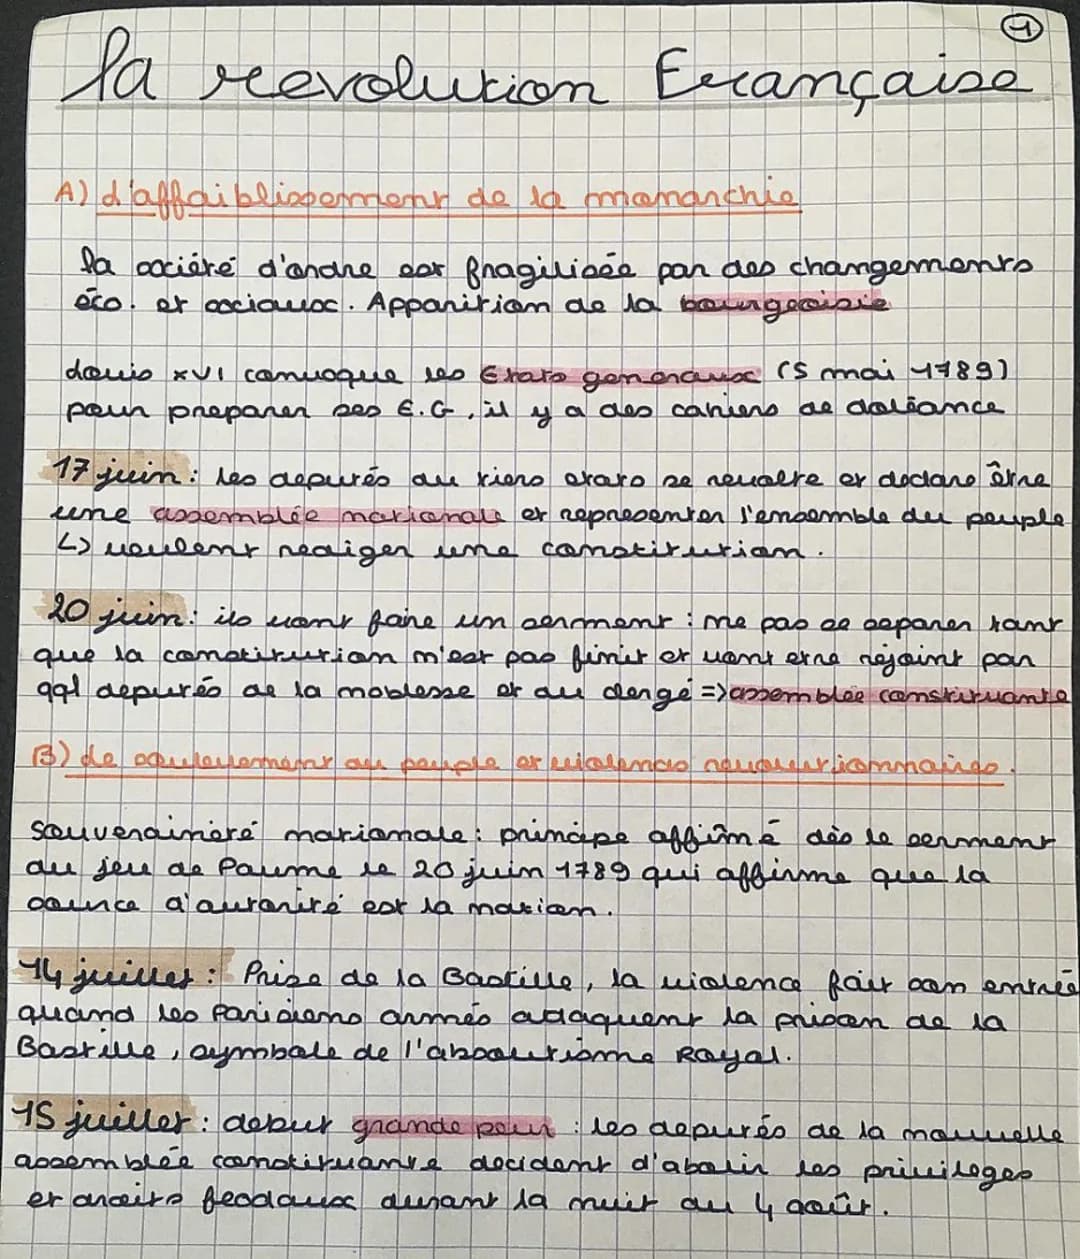 1
La revolution Française
A) L'affaiblissement de la monarchie
La société d'ordre est fragilisée par des changements
éco. et sociaux. Apparition de la bourgeoisie
Louis XVI convoque les Etats generaux (5 mai 1789)
pour preparer ses E.G, il y a des cahiers de doléance
17 juin : Les deputés du tiers etats se revolte et declare être
une assemblée nationale et representer l'ensemble du peuple
↳ veulent rediger une constitution.
20 juin : ils vont faire un serment : ne pas se separer tant
que la constitution n'est pas finit et vont etre rejoint par
qql deputés de la noblesse et du clergé => assemblée constituante
B) Le soulevement du peuple et violences revolutionnaires.
Souveraineté nationale : principe affirmé dès le serment
du jeu de Paume le 20 juin 1789 qui affirme que la
source d'autorité est la nation.
14 juillet : Prise de la Bastille, la violence fait son entrée
quand les Parisiens armés attaquent la prison de la
Bastille, symbole de l'absolutisme Royal.
15 juillet : debut grande peur : les deputés de la nouvelle
assemblée constituante decident d'abolir les privileges
et droits feodaux durant la nuit du 4 août.